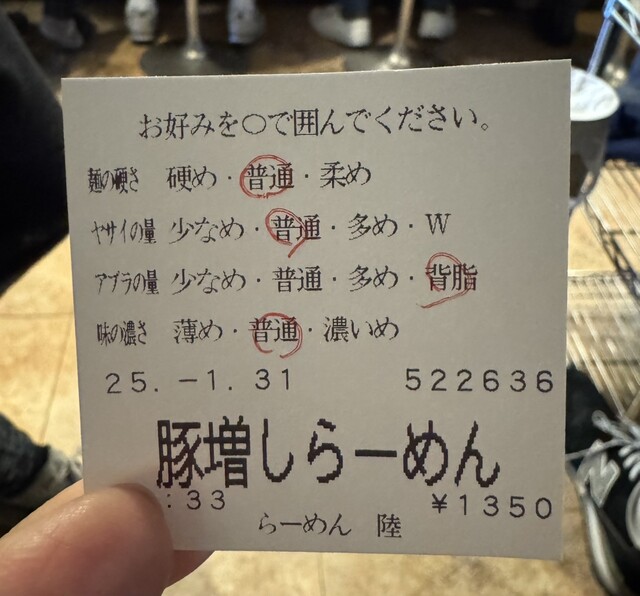 お好みを○で囲んでください。
麺の硬さ 硬め・普通・柔め
ヤサイの量 少なめ・普通・多め・W
アブラの量 少なめ・普通・多め・背脂
味の濃さ 薄め・普通・濃いめ
25.-1.31 522636
豚増しらーめん
:33 ¥1350
らーめん 陸